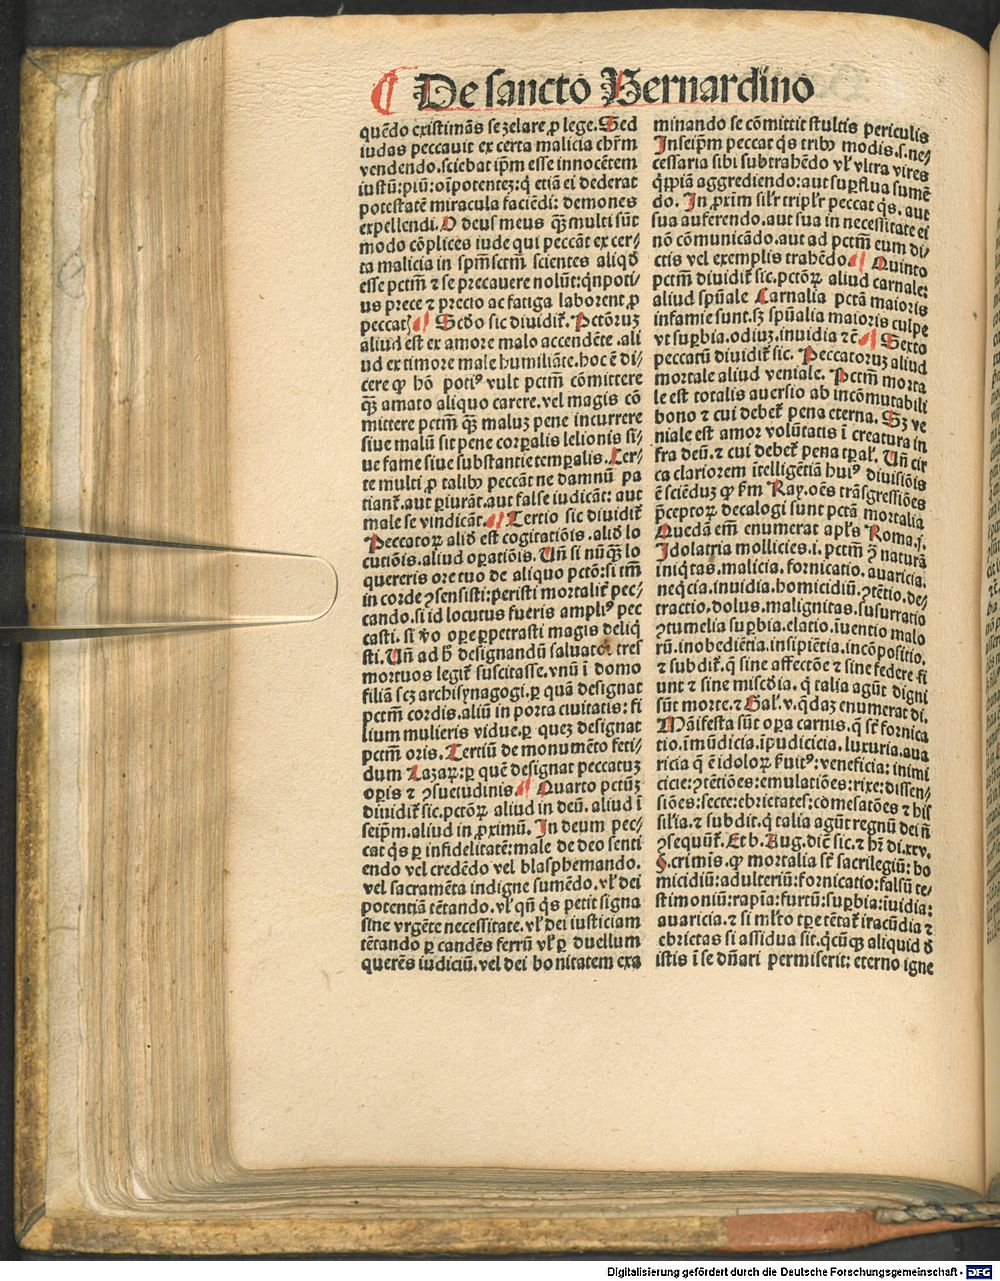 ¶ De sancto Bernardino
quēdo existimās se zelare ꝓ lege. Sed
iudas peccauit ex certa malicia chr̄m
vendendo. sciebat ip̄m esse innocētem
iustū: piū: oīpotentez: q̇ etiā ei dederat
potestatē miracula faciēdi: demones
expellendi. O deus meus qꝫ multi sūt
modo cōplices iude qui peccāt ex cer⸗
ta malicia in spm̄sctm̄ scientes aliqd̄
esse pctm̄ ⁊ se precauere nolūt: qn̄poti⸗
us prece ⁊ precio ac fatiga laborent ꝓ
peccatꝭ ¶ Scd̄o sic diuidit̄. Pctōruz
aliud est ex amore malo accendēte. ali
ud ex timore male humiliāte. hoc ē di⸗
cere ꝙ hō potiꝰ vult pctm̄ cōmittere
qꝫ amato aliquo carere. vel magis cō
mittere pctm̄ qꝫ maluz pene incurrere
siue malū sit pene corꝑalis lesionis si⸗
ue fame siue substantie temꝑalis. Cer⸗
te multi ꝓ talibꝰ peccāt ne damnū pa
tiant̄. aut ꝑiurāt. aut false iudicāt: aut
male se vindicāt. ¶ Tertio sic diuidit̄
Peccatoꝝ aliď est cogitatiōis. aliď lo
cutiōis. aliud oꝑatiōis. Un̄ si nūqꝫ lo
quereris ore tuo de aliquo pctō: si tm̄
in corde ꝯsensisti: peristi mortalit̄ pec⸗
cando. si id locutus fueris ampliꝰ pec
casti. si v̄o oꝑe ꝑpetrasti magis deliq̇
sti. Un̄ ad h̄ designandū saluator tres
mortuos legit̄ suscitasse. vnū ī domo
filiā scꝫ archisynagogi. ꝑ quā designat
pctm̄ cordis. aliū in porta ciuitatis: fi
lium mulieris vidue. ꝑ quez designat
pctm̄ oris. Tertiū de monumēto feti⸗
dum Lazaꝝ: ꝑ quē designat peccatuz
oꝑis ⁊ ꝯsuetudinis. ¶ Quarto pctūz
diuidit̄ sic. pctōꝝ aliud in deū. aliud ī
seip̄m. aliud in ꝓximū. In deum pec⸗
cat qs ꝑ infidelitatē: male de deo senti
endo vel credēdo vel blasphemando.
vel sacramēta indigne sumēdo. vl̄ dei
potentiā tētando. vl̄ qn̄ qs petit signa
sine vrgēte necessitate. vl̄ dei iusticiam
tētando ꝑ candēs ferrū vl̄ ꝑ duellum
querēs iudiciū. vel dei bonitatem exa
minando se cōmittit stultis periculis
In seip̄m peccat qs tribꝰ modis. s. ne⸗
cessaria sibi subtrahēdo vl̄ vltra vires
ꝓpriā aggrediendo: aut suꝑflua sumē
do. In ꝓxim̄ sil̄r tripl̄r peccat qs. aut
sua auferendo. aut sua in necessitate ei
nō cōmunicādo. aut ad pctm̄ eum di⸗
ctis vel exemplis trahēdo. ¶ Quinto
pctm̄ diuidit̄ sic. pctōꝝ aliud carnale:
aliud spūale Carnalia pctā maioris
infamie sunt. sꝫ spūalia maioris culpe
vt suꝑbia. odiuz. inuidia ⁊c̄ ¶ Sexto
peccatū diuidit̄ sic. Peccatoruz aliud
mortale aliud veniale. Pctm̄ morta
le est totalis auersio ab incōmutabili
bono ⁊ cui debet̄ pena eterna. Sꝫ ve
niale est amor volūtatis ī creatura in
fra deū. ⁊ cui debet̄ pena tꝑal̄. Un̄ cir
ca clariorem ītelligētiā huiꝰ diuisiōis
ē sciēduz ꝙ ẜm Ray. oēs trāsgressiōes
p̄ceptoꝝ decalogi sunt pctā mortalia
Quedā em̄ enumerat apl̄s Roma. j.
Idolatria mollicies. i. pctm̄ ꝯ̄ naturā
iniq̇tas. malicia. fornicatio. auaricia.
neq̇cia. inuidia. homicidiū. ꝯtētio. de⸗
tractio. dolus. malignitas. susurratio
ꝯtumelia suꝑbia. elatio. īuentio malo
rū. inobediētia. insipiētia. incōpositio.
⁊ subdit̄. q̄ sine affectōe ⁊ sine federe fi
unt ⁊ sine misc̄dia. q̄ talia agūt digni
sūt morte. ⁊ Gal̄. v. q̇daz enumerat di.
Māifesta sūt oꝑa carnis. q̄ st̄ fornica
tio. īmūdicia. īpudicicia. luxuria. aua
ricia q̄ ē idoloꝝ ẜuitꝰ: veneficia: inimi
cicie: ꝯtētiōes: emulatiōes: rixe: dissen⸗
siōes: secte: ebrietates: comesatōes ⁊ his
sil̄ia. ⁊ subdit. q̇ talia agūt regnū dei n̄
ꝯsequūt̄. Et b. Aug. dic̄ sic. ⁊ hr̄ di. xxv.
§. crimīs. ꝙ mortalia st̄ sacrilegiū: ho
micidiū: adulteriū: fornicatio: falsū te⸗
stimoniū: rapīa: furtū: suꝑbia: iuidia:
auaricia. ⁊ si ml̄to tꝑe tētat̄ iracūdia ⁊
ebrietas si assidua sit. q̇cūqꝫ aliquid d̄
istis ī se dn̄ari permiserit: eterno igne
Digitalisierung gefördert durch die Deutsche Forschungsgemeinschaft - DFG